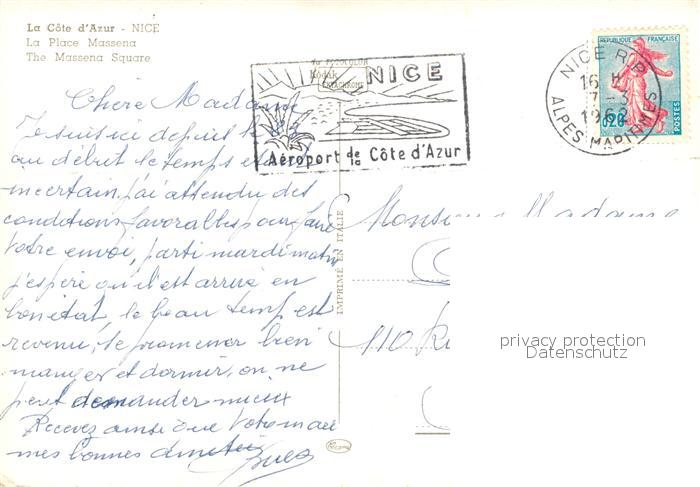 La Côte d'Azur - NICE
La Place Massena
The Massena Square
Kodak
NICE
Aéroport de la Côte d'Azur
NICE R.P.
16 H
7-3
1962
ALPES-MARITIMES
REPUBLIQUE FRANÇAISE
0,20
POSTES
Chère Madame
Je suis ici depuis le
au début le temps
incertain, j'ai attendu des
conditions favorables pour faire
votre envoi, parti mardi matin
j'espère qu'il est arrivé en
bon état, le beau temps est
revenu, se promener bien
manger et dormir, on ne
peut demander mieux
Recevez ainsi que votre mari
mes bonnes amitiés
IMPRIMÉ EN ITALIE
110 Ru
privacy protection
Datenschutz